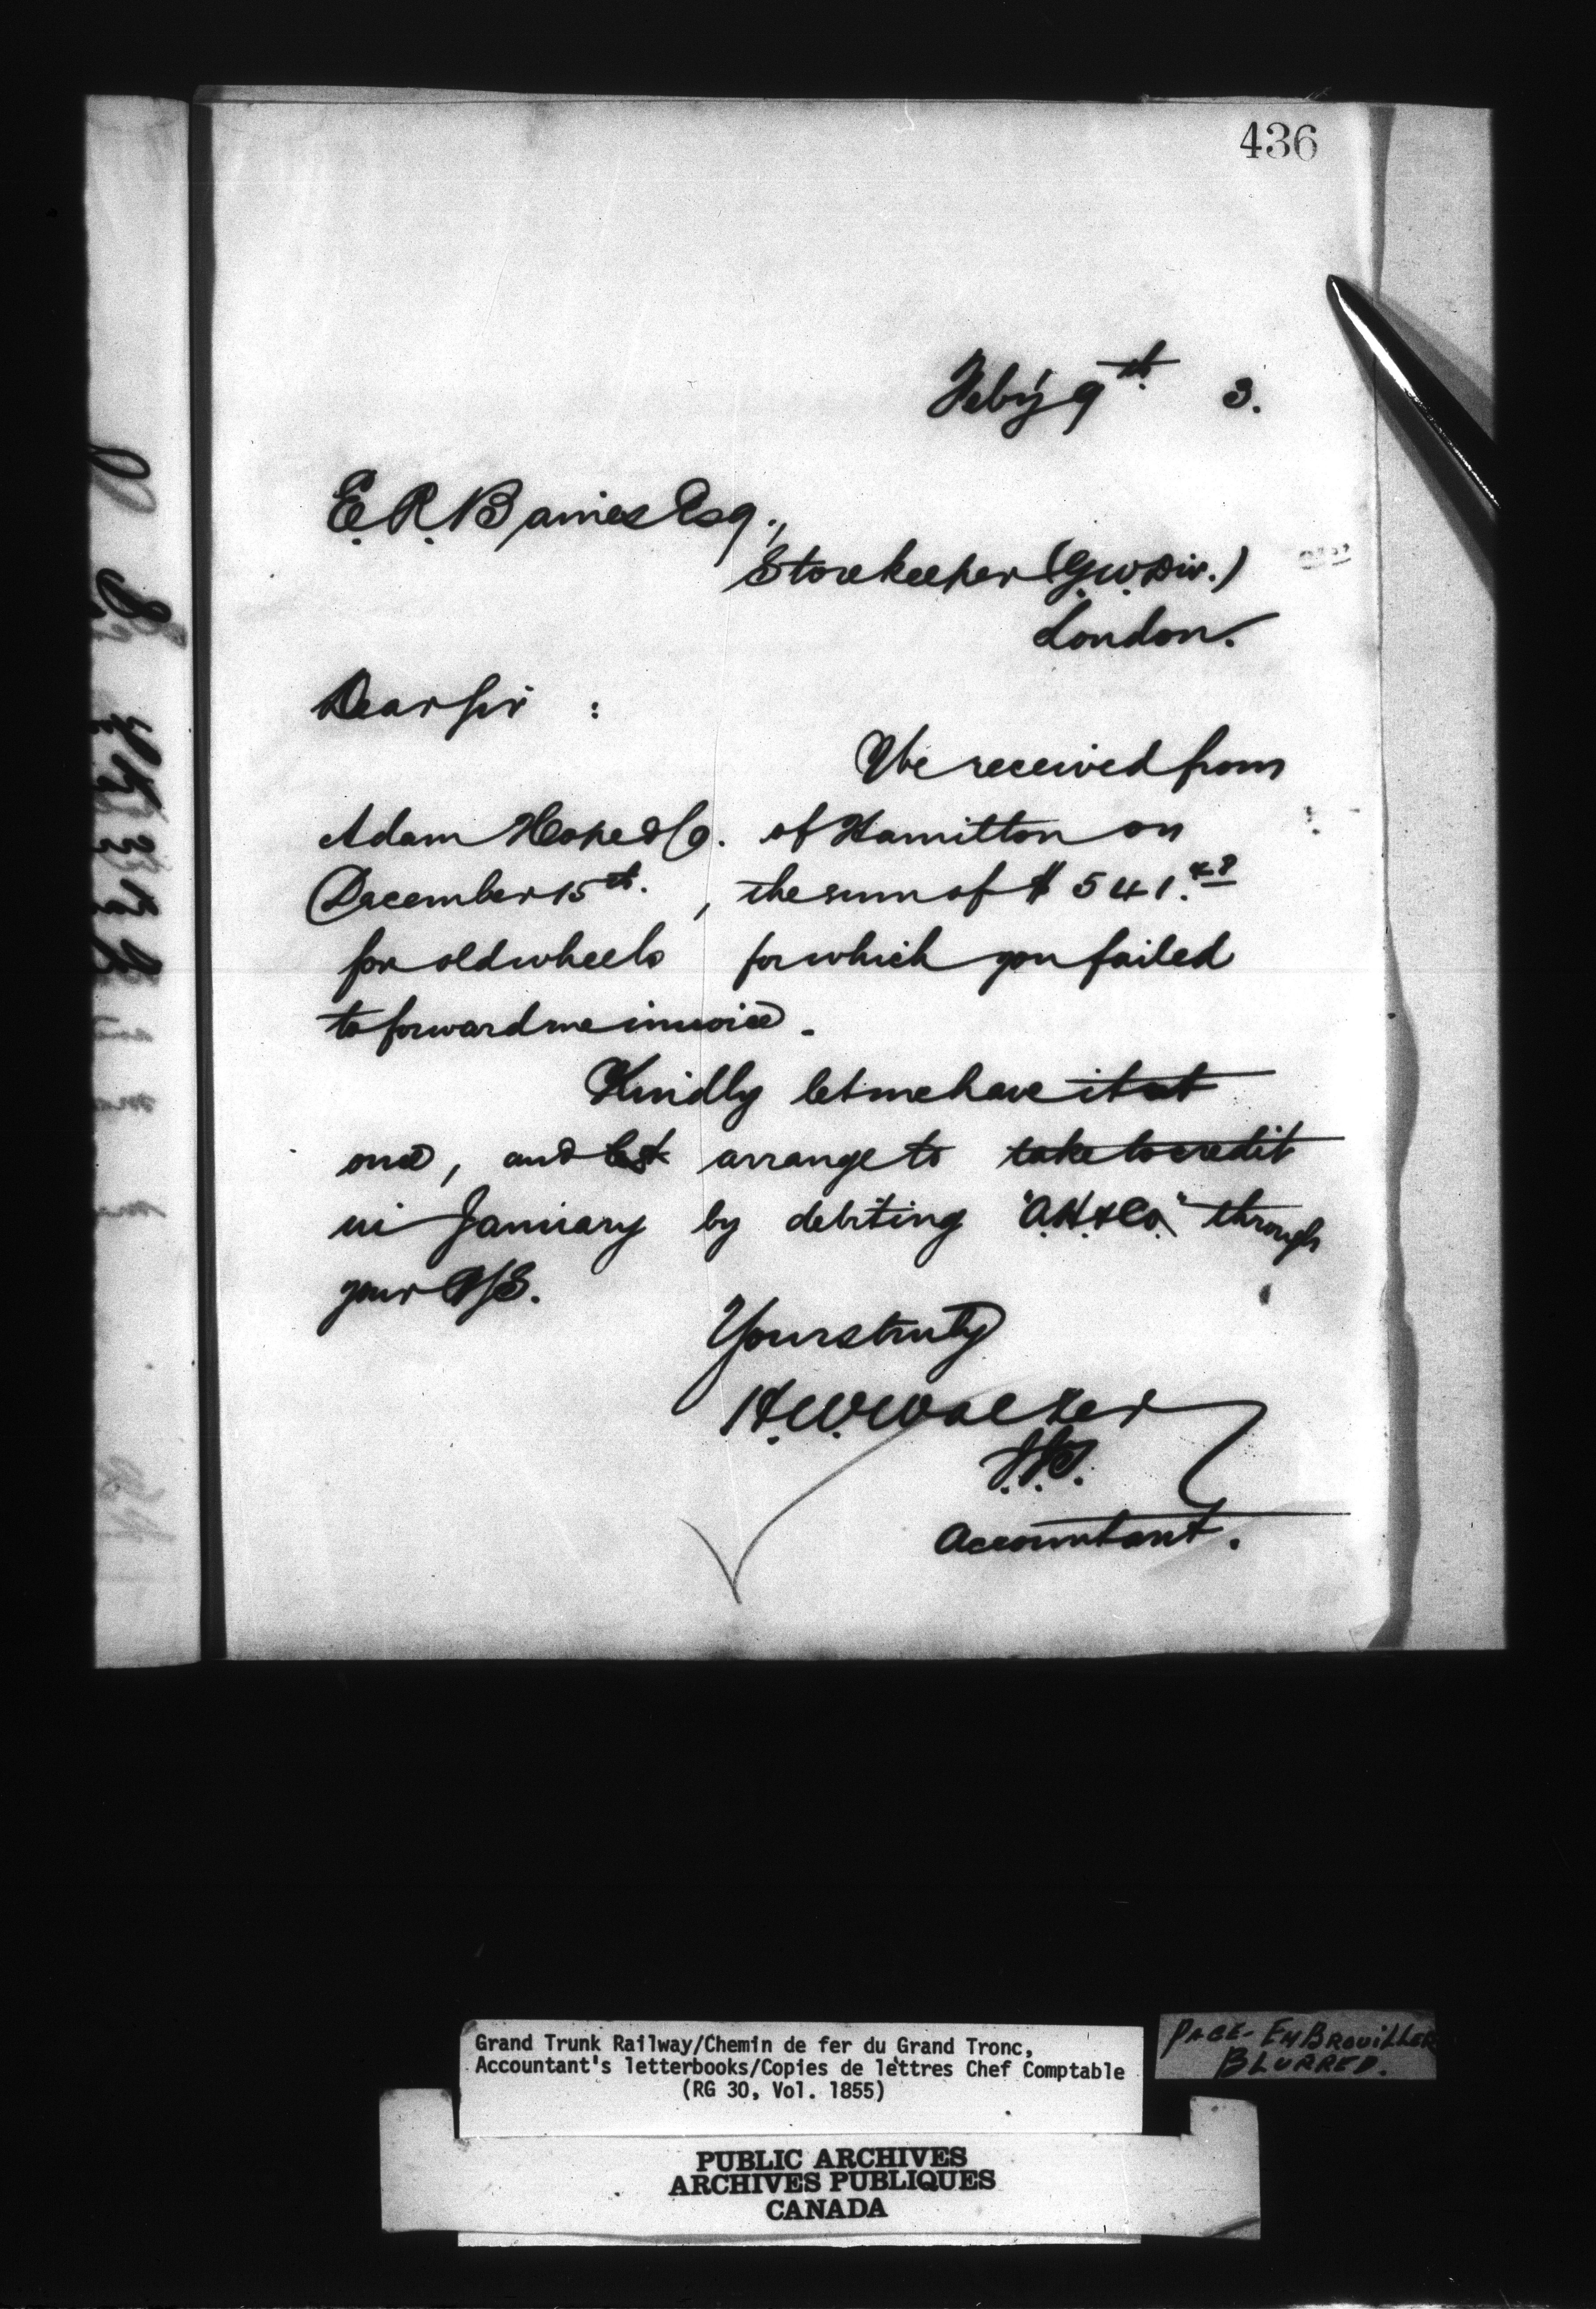 436
Feb'y 9th. 3.
E. R. Baines Esq.,
Storekeeper (G.W. Div.)
London.
Dear Sir :
We received from
Adam Hope & Co. of Hamilton on
December 15th. , the sum of $ 541.48
for old wheels for which you failed
to forward me invoice.
Kindly let me have it at
once, and arrange to take to credit
in January by debiting "A.H. & Co." through
your A/S.
Yours truly
H.W. Walker
Accountant.
Grand Trunk Railway/Chemin de fer du Grand Tronc,
Accountant's letterbooks/Copies de lettres Chef Comptable
(RG 30, Vol. 1855)
PAGE - EMBROUILLER
BLURRED.
PUBLIC ARCHIVES
ARCHIVES PUBLIQUES
CANADA